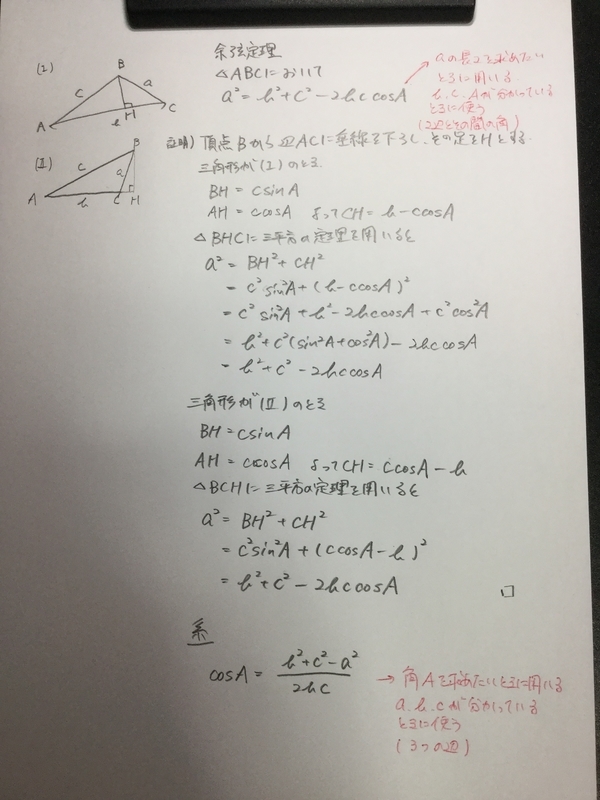 余弦定理
△ABCにおいて
a² = b² + c² − 2bc cosA
aの長さを求めたい
ときに用いる
b, c, Aが分かっている
ときに使う
(2辺とその間の角)
(I)
B
c
a
A
H
C
b
(II)
B
c
a
A
b
C
H
証明) 頂点Bから辺ACに垂線を下ろし、その足をHとする
三角形が(I)のとき
BH = csinA
AH = ccosA よってCH = b − ccosA
△BHCに三平方の定理を用いると
a² = BH² + CH²
= c²sin²A + (b − ccosA)²
= c²sin²A + b² − 2bccosA + c²cos²A
= b² + c²(sin²A + cos²A) − 2bccosA
= b² + c² − 2bccosA
三角形が(II)のとき
BH = csinA
AH = ccosA よってCH = ccosA − b
△BCHに三平方の定理を用いると
a² = BH² + CH²
= c²sin²A + (ccosA − b)²
= b² + c² − 2bccosA □
系
cosA = (b² + c² − a²) / 2bc
→ 角Aを求めたいときに用いる
a, b, cが分かっている
ときに使う
(3つの辺)